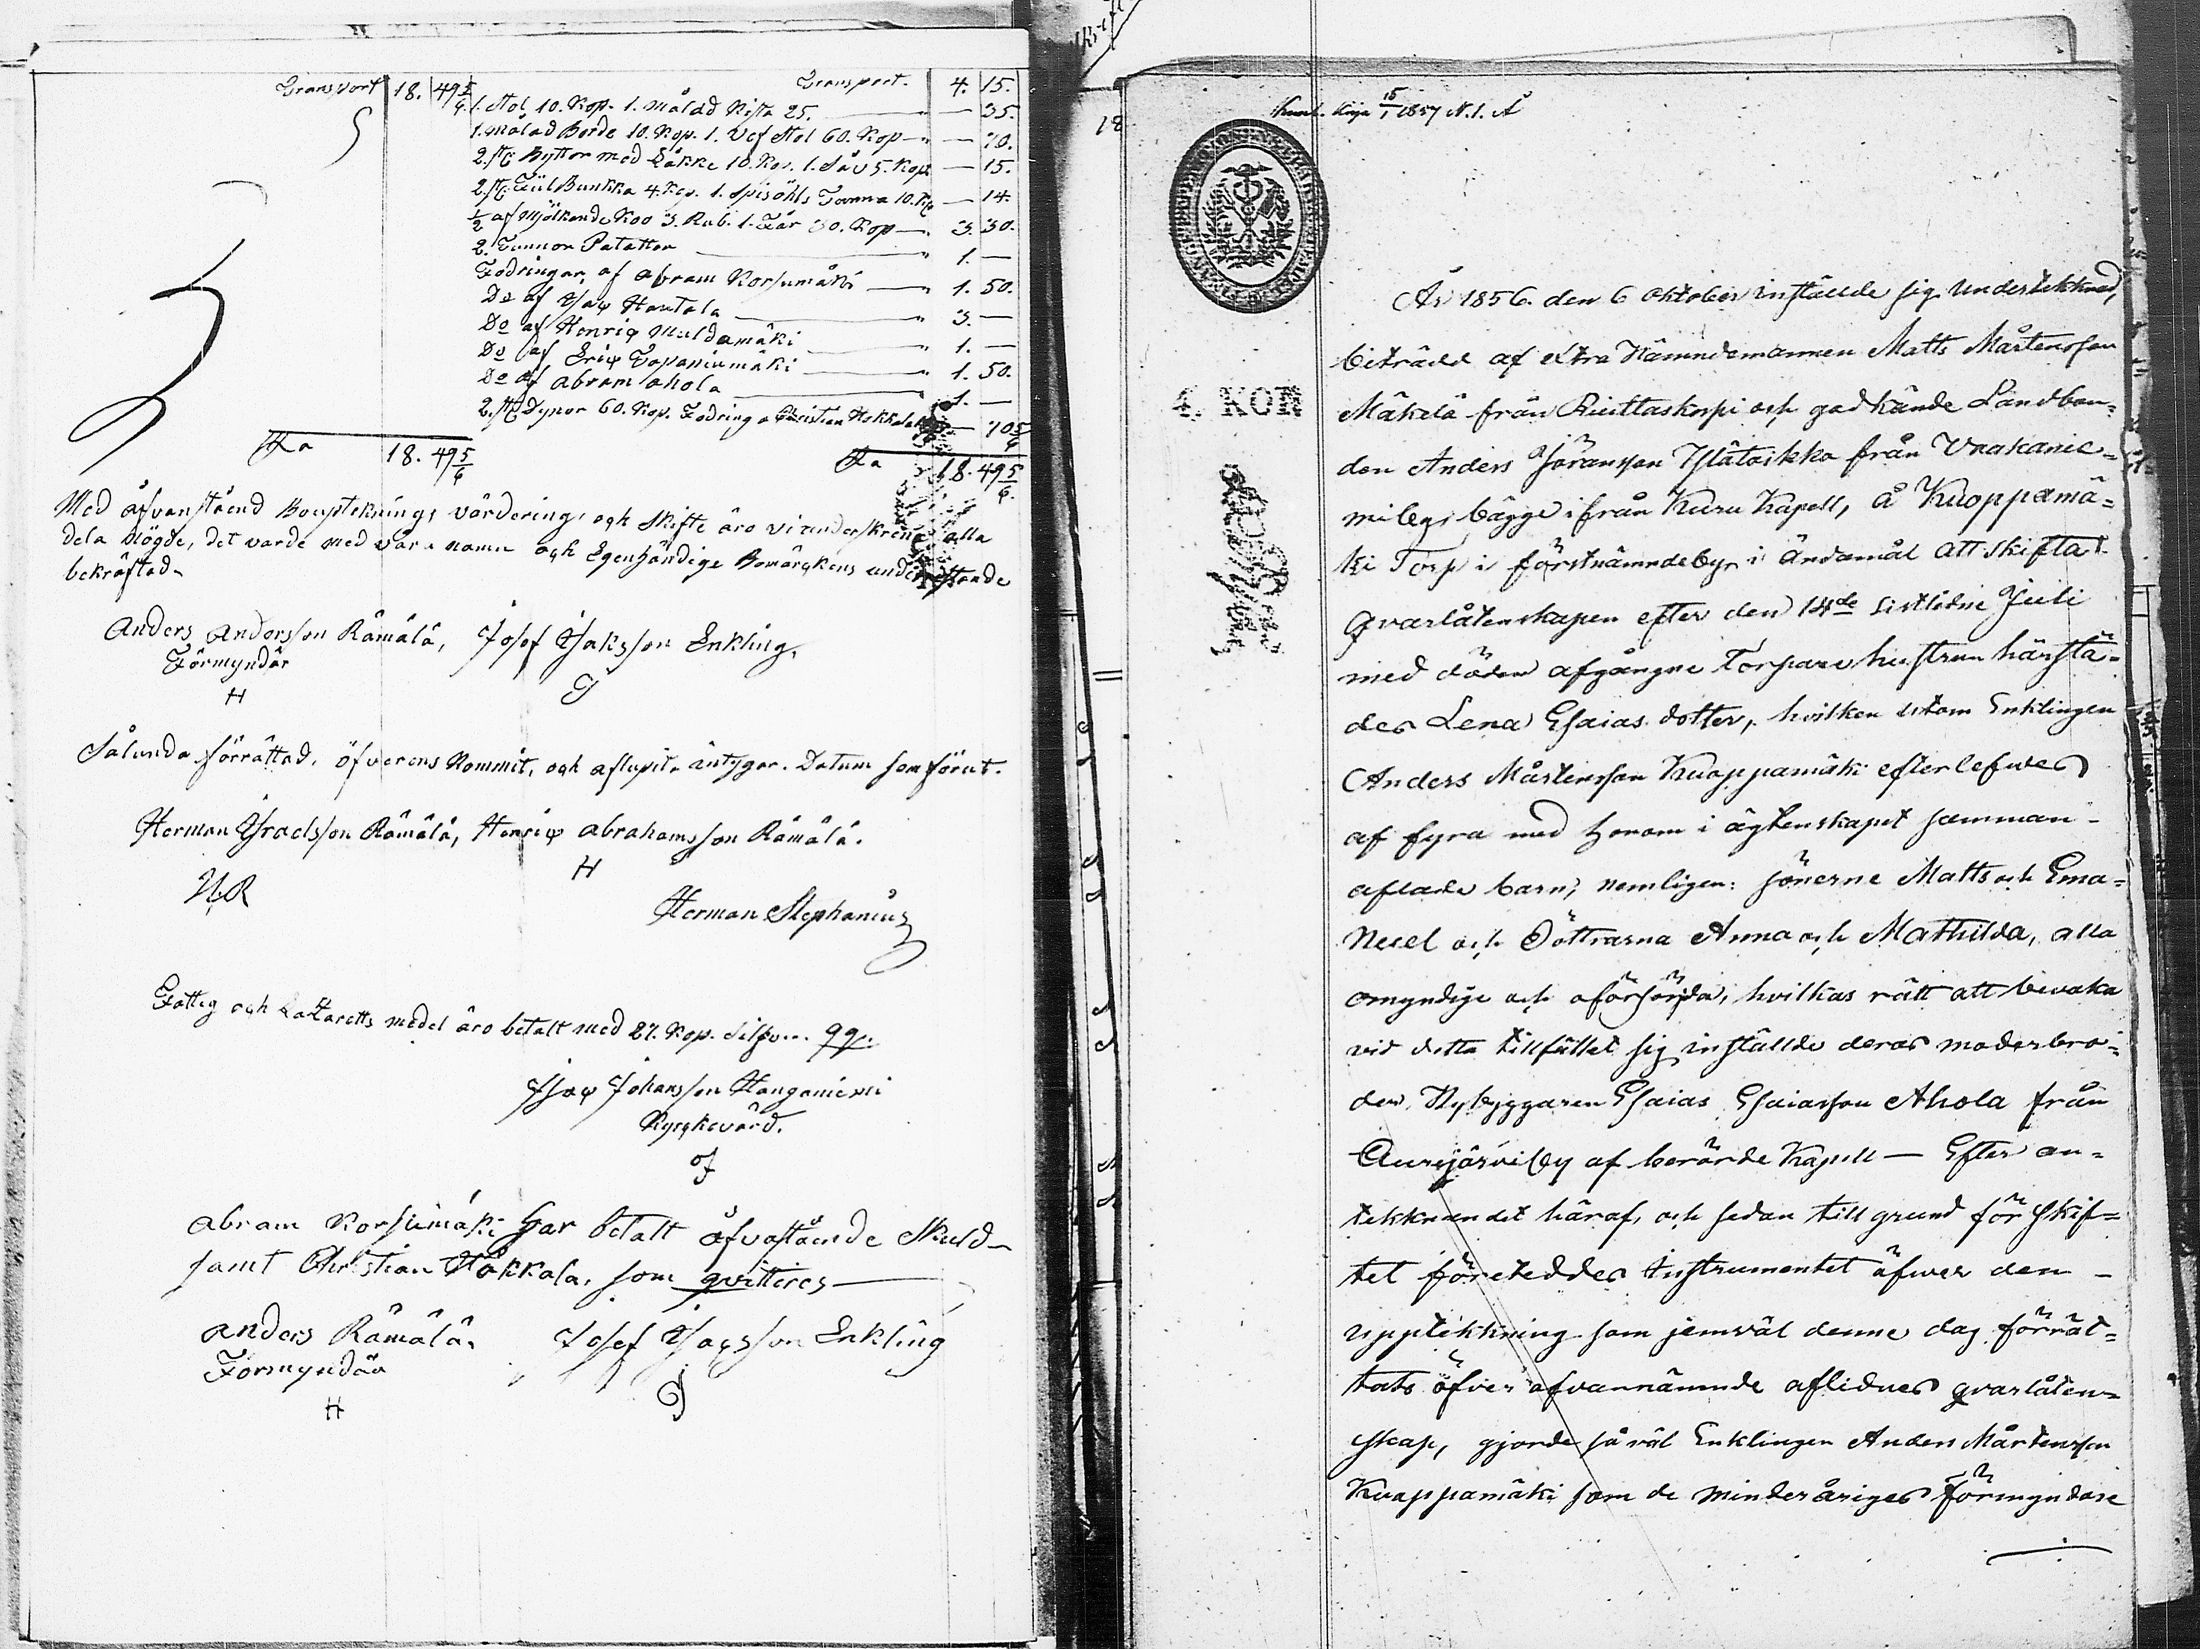 Transport 18. 49 5/6
Transport. 4. 15.
1. Stol 10. Kop. 1. målad Kista 25. — 35.
1. målad Borde 10. Kop. 1. Vef Stol 60. Kop — 70.
2. st: Byttor med Låkke 10. Kop. 1. Såv 5. Kop — 15.
2. st: Fiil Bunkka 4. Kop. 1. Spisöhls Tonna 10. Kop — 14.
1/2 af Mjölkande Koo 3. Rub. 1. Får 30. Kop — 3. 30.
2. Tunnor Patatter — 1. —
Fodringar af Abram Korsumäki — 1. 50.
Do af Isaq Hautala — 3. —
Do af Henriq Muldamäki — 1. —
Do af Eriq Tapaninmäki — 1. 50.
Do af Abram Ahola — 1. —
2. st: Dynor 60. Kop. Fodring a Christian Hokkola — 70 5/6
Sa 18. 49 5/6
Sa 18. 49 5/6.
Med åfvanståend Bouptekning, värdering, och Skifte äro vi underskrena alla
dela Nögde, det varde med våra namn och Egenhändige Bomärckens understande
bekräftad-
Anders Andersson Rämälä, Josef Isaksson Enkling,
Förmyndår
H
J
Sålunda förrättad, öfverens Kommit, och aflupit, intygar. Datum som förut.
Herman Israelsson Rämälä, Henriq Abrahamsson Rämälä.
H
Herman Stephanius
Fattig och Lazaretts medel äro betalt med 27. Kop. Silfver. qq.
Isaq Johansson Hanganiemi
Kyrckovård.
Abram Korsumäki har betalt åfvastående Skuld-
samt Christian Håkkola, som qvitteres —
Anders Rämälä, Josef Isaqsson Enkling
Förmyndår
H
J
15/1 1857 N. 1. Å
18
4. KOP
År 1856. den 6 Oktober inställde sig Undertekknad,
biträdd af extra Nämndemannen Matts Mårtensson
Mäkelä från Riuttaskorpi och godkände Landbon-
den Anders Jöransson Yliätoikko från Vaakanie-
miby, bägge ifrån Kuru Kapell, å Kuoppamä-
ki Torp i förstnämndeby, i ändamål att skifta
qvarlåtenskapen efter den 14de sistledne Juli
med döden afgångne Torpare hustrun härstä-
des Lena Esaias dotter, hvilken utom Enklingen
Anders Mårtensson Kuoppamäki efterlefwes
af fyra med honom i ägtenskapet samman-
aflade barn, nemligen: sönerne Matts och Ema-
nuel och Döttrarna Anna och Mathilda, alla
omyndige och oförsörjda, hvilkas rätt att bevaka
vid detta tillfället sig inställde deras moderbro-
der, Nybyggaren Esaias Esaiasson Ahola från
Aurejärvi by af berörde Kapell — Efter an-
tekknandet häraf, och sedan till grund för skif-
tet företeddes Instrumentet äfwer den -
upptekkning som jemväl denne dag förrät-
tats öfver ofvannämnde aflidnes qvarlåten-
skap, gjorde så väl Enklingen Anders Mårtensson
Kuoppamäki som de minderåriges förmyndare